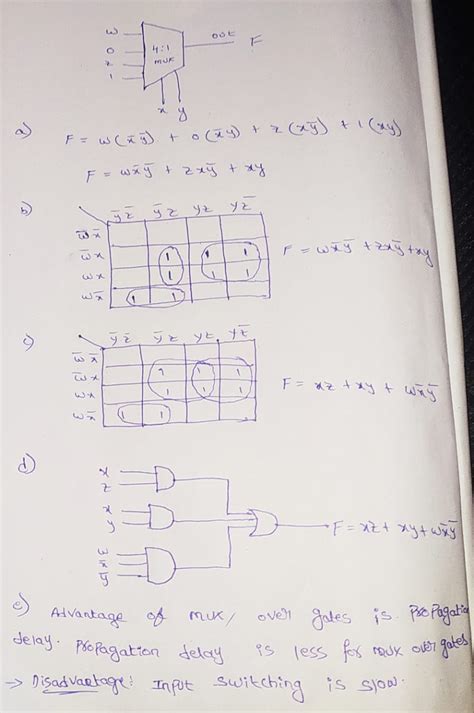 w
0
z
1
4:1
MUX
out F
x y
a)
F = w(x̅y̅) + 0(x̅y) + z(xy̅) + 1(xy)
F = wx̅y̅ + zxy̅ + xy
b)
y̅z̅ y̅z yz yz̅
w̅x̅
w̅x 1 1 1
wx 1 1 1
wx̅ 1 1
F = wx̅y̅ + zxy̅ + xy
c)
y̅z̅ y̅z yz yz̅
w̅x̅
w̅x 1 1 1
wx 1 1 1
wx̅ 1 1
F = xz + xy + wx̅y̅
d)
x
z
x
y
w
x̅
y̅
F = xz + xy + wx̅y̅
e) Advantage of mux/ over gates is propagation
delay. Propagation delay is less for mux over gates
→ Disadvantage: Input switching is slow.